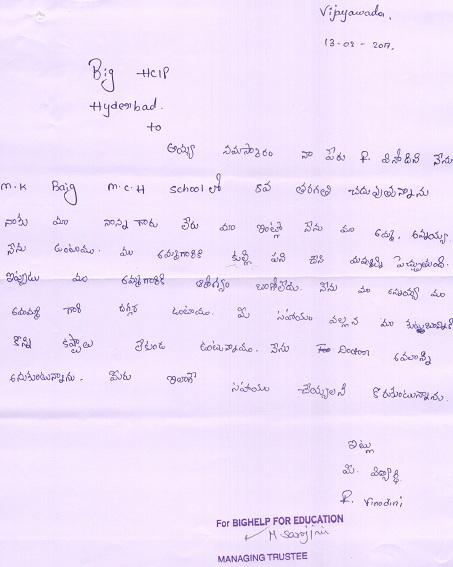 Vijayawada.
13-02-2017.
Big HCIP
Hyderabad.
to
అయ్యా నమస్కారం నా పేరు R. వినోదిని నేను
M.K Baig M.C.H School లో 8వ తరగతి చదువుతున్నాను
నాకు మా నాన్న గారు లేరు మా ఇంట్లో నేను మా అమ్మ, అన్నయ్య
నేను ఉంటాము. మా అమ్మగారికి కుట్టు పని చేసి మమ్మల్ని
ఇప్పుడు మా అమ్మగారికి ఆరోగ్యం బాగోలేదు. నేను మా అన్నయ్య మా
అమ్మమ్మ గారి దగ్గర ఉంటాము. మీ సహాయం వల్లన మా
కొన్ని కష్టాలు లేకుండ ఉంటున్నాము. నేను Doctor అవలాన్ని
అనుకుంటున్నాను. మీరు ఇలాగే సహాయం చేయ్యలని కొరుకుంటున్నాను.
ఇట్లు
మీ విద్యార్థి
R. Vinodini
For BIGHELP FOR EDUCATION
M Sarojini
MANAGING TRUSTEE